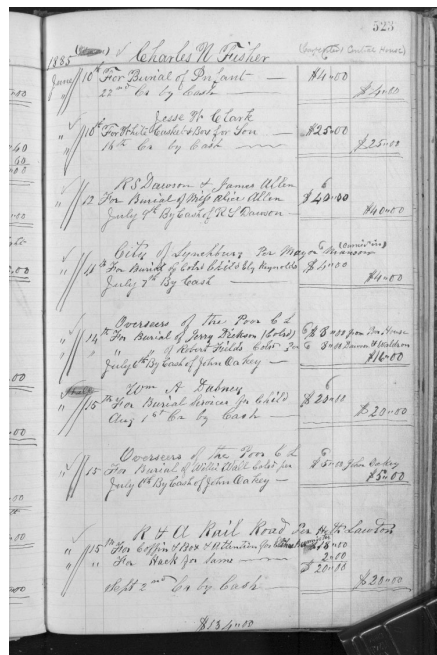 523
1885 Charles N Fisher
June 10th For Burial of Infant — $4"00
22nd Cr by Cash — $4"00
Jesse W Clark
" 10th For White Casket & Box for Son — $25"00
16th Cr by Cash — $25"00
R S Dawson & James Allen
" 12 For Burial of Miss Alice Allen $40"00
July 9th By Cash of R S Dawson — $40"00
City of Lynchburg Per Mayor Manson
" 14th For Burial of Cold Child Ely Reynolds $4"00
July 7th By Cash — $4"00
Overseers of the Poor C L
" 14th For Burial of Jerry Dickson (Cold) $8"00 from Poor House
" " " of Robert Fields Cold $8"00
July 6th By Cash of John Oakey — $16"00
Wm A Dabney
" 15th For Burial Services for Child $20"00
Aug 1st Cr by Cash — $20"00
Overseers of the Poor C L
" 15 For Burial of Willie Cold $5"00 John Oakey
July 6th By Cash of John Oakey — $5"00
R & A Rail Road Per Lawton
" 15th For Coffin & Box & Attention $18"00
" " For Hack for same — 2"00
$20"00
Sept 2nd Cr by Cash — $20"00
$134"00